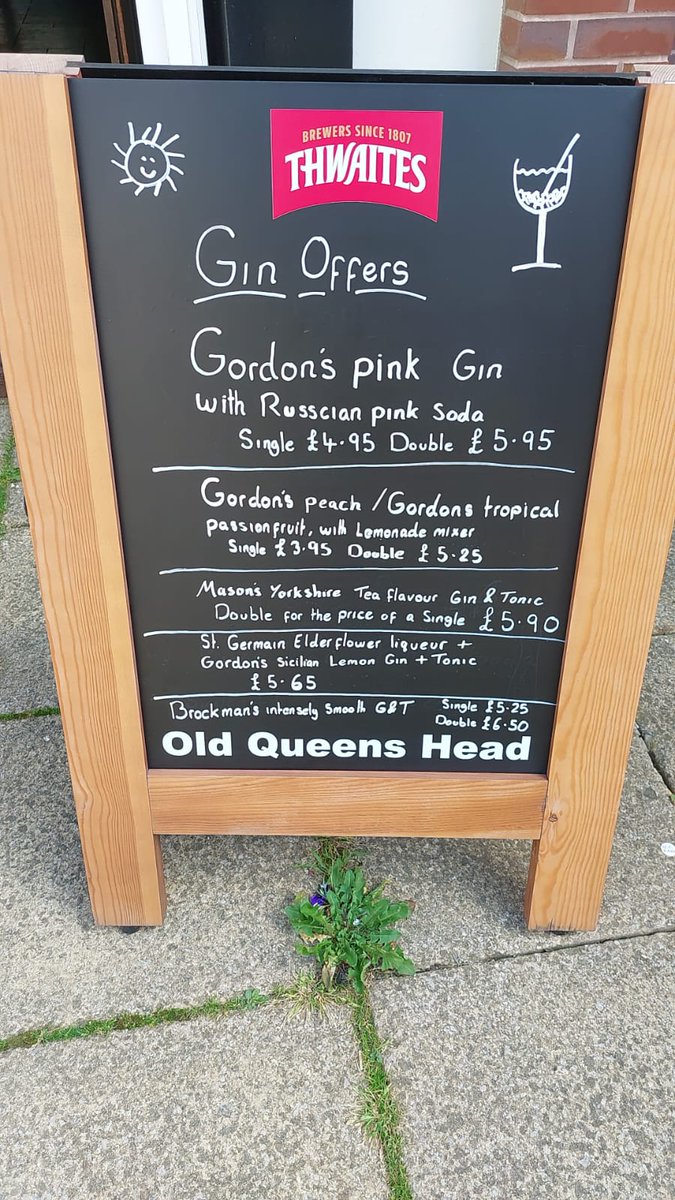 BREWERS SINCE 1807
THWAITES
Gin Offers
Gordon's pink Gin
with Russcian pink Soda
Single £4.95 Double £5.95
Gordon's peach / Gordons tropical
passionfruit, with Lemonade mixer
Single £3.95 Double £5.25
Mason's Yorkshire Tea flavour Gin & Tonic
Double for the price of a Single £5.90
St. Germain Elderflower liqueur +
Gordon's Sicilian Lemon Gin + Tonic
£5.65
Brockman's intensely Smooth G&T Single £5.25
Double £6.50
Old Queens Head